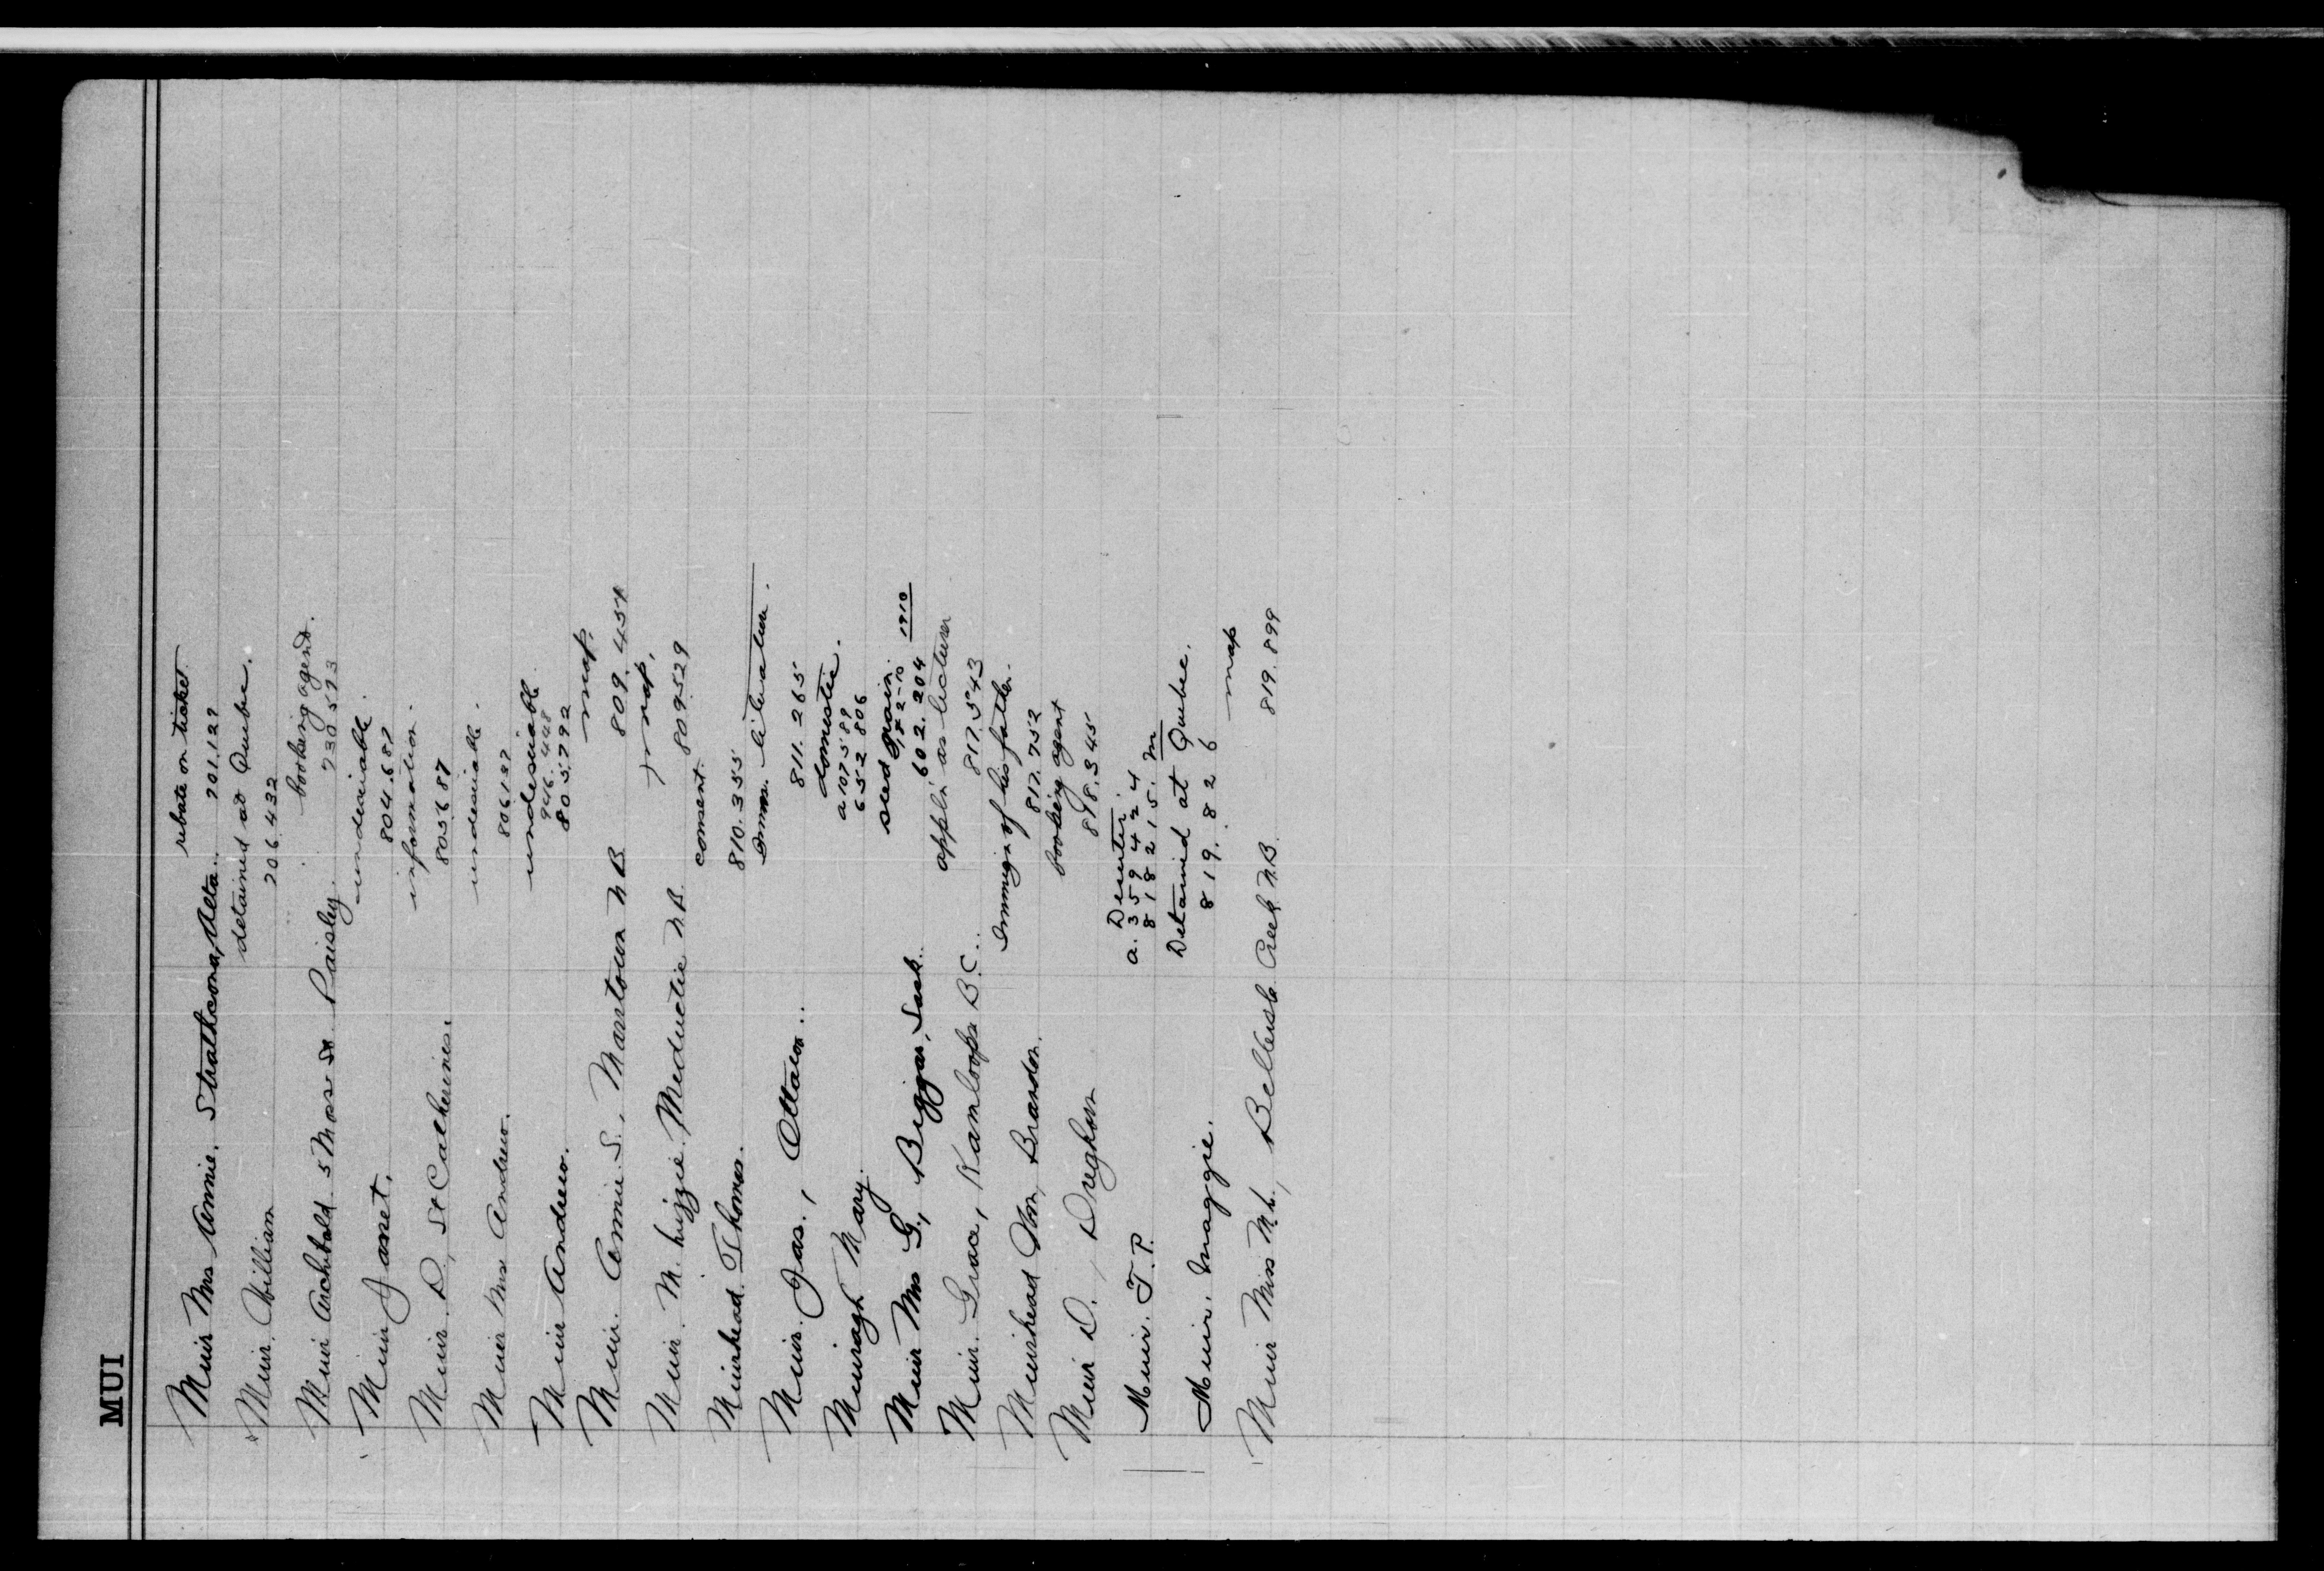 MUI
rebate on ticket
Muir Mrs Annie. Strathcona, Alta. 201.129
detained at Quebec.
Muir. William 206.432
booking agent.
Muir Archibald 5 Moss St Paisley. 230593
undesirable.
Muir Janet. 804.687
information.
Muir. D, St Catherines. 805687
undesirable.
Muir Mrs Andrew. 806127
undesirable
946.448
Muir Andrew. 805,792
map,
Muir. Annie S., N.B 809.454
map,
Muir. M. Lizzie. Meductic N.B. 809529
consent.
Muirhead. Thomas. 810.355
literature.
Muir. Jas., Ottawa.. 811.265
domestic.
a107589
Muiragh Mary. 652 806
seed grain. 1910
Muir Mrs G., Biggar, Sask. 602.204
appl'n as lecturer
Muir. Grace, Kamloops B.C... 817.543
Immig'n of his father.
Muirhead Wm, Brandon. 817.752
booking agent
Muir D., Dreghorn 818.345
Deserter.
a. 359424
Muir. T.P. 818215. M
Detained at Quebec.
Muir. Maggie. 819.826
map
Muir Miss M.L., Belleisle Creek N.B. 819.899